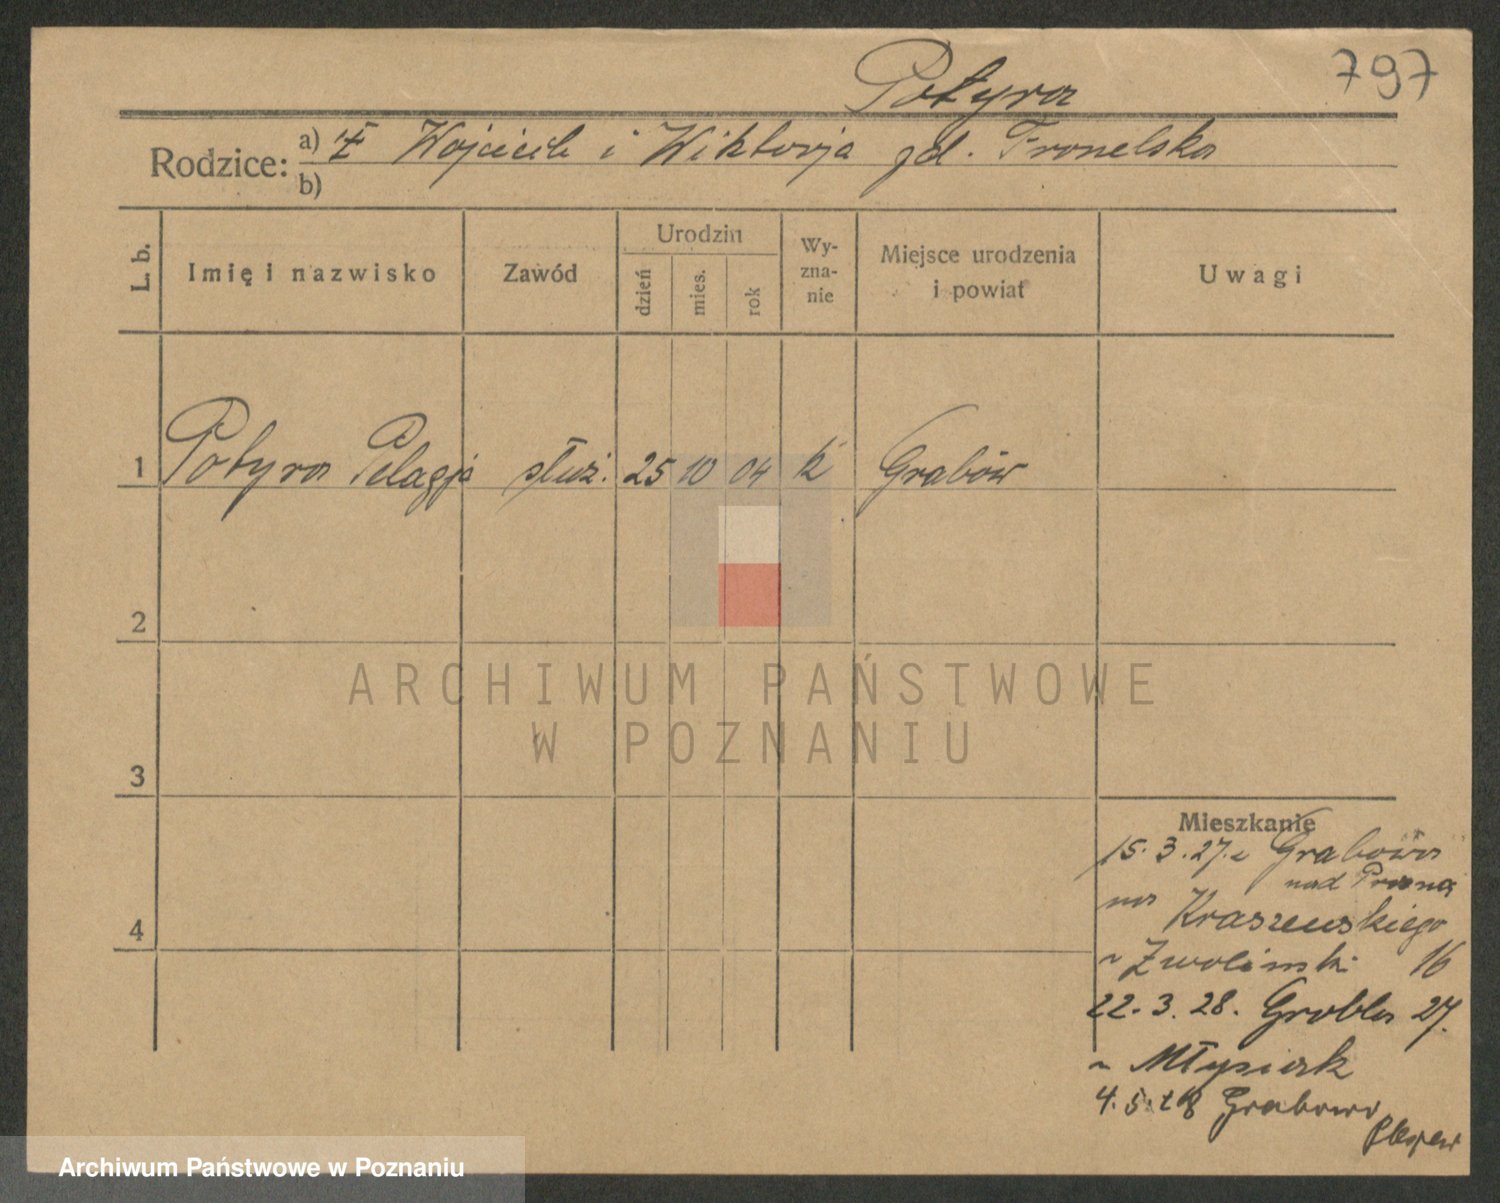 797
Potyra
Rodzice: a) Wojciech i Wiktorja zd. Tronelska
b)
L. b. Imię i nazwisko Zawód Urodzin dzień mies. rok Wy-zna-nie Miejsce urodzenia i powiat Uwagi
1 Potyra Pelagja służ. 25 10 04 k Grabów
2
ARCHIWUM PAŃSTWOWE
W POZNANIU
3
Mieszkanie
15. 3. 27. z Grabowa
nad Prosną
na Kraszewskiego
Zwoliński 16
22. 3. 28. Grobla 27.
4
Młysiak
4. 5. 28 Grabowo
Archiwum Państwowe w Poznaniu